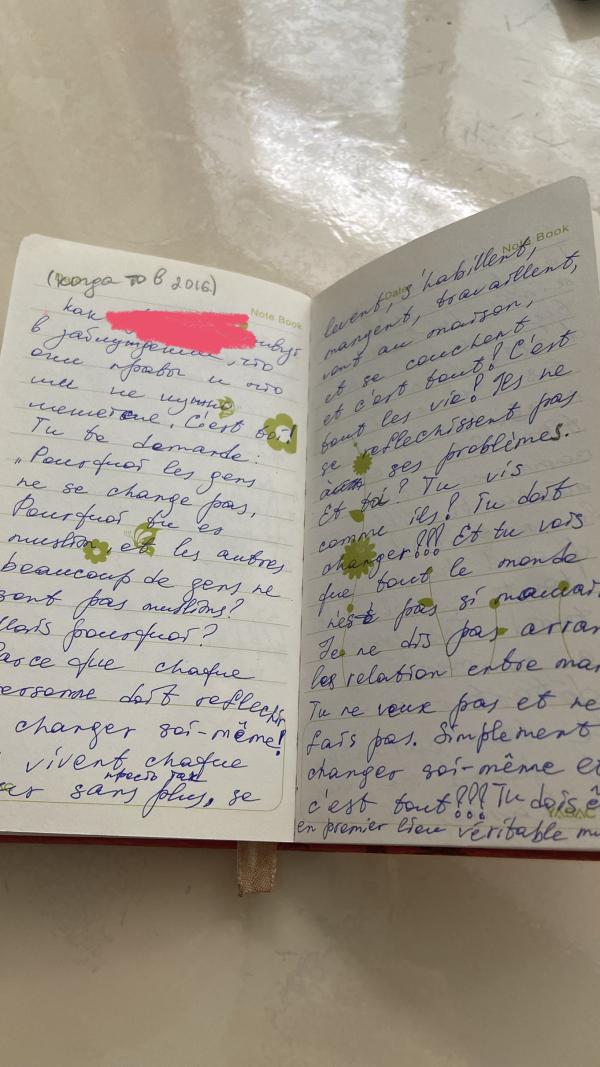 (когда то в 2016)
Note Book
как живут
в заблуждение, что
они правы и что
им не нужно
C'est toi!
Tu te demande:
„Pourquoi les gens
ne se change pas,
Pourquoi tu es
muslim, et les autres
beaucoup de gens ne
sont pas muslims?
Mais pourquoi?
Parce que chaque
personne doit reflechir
changer soi-même!
vivent chaque
просто так
sans plus, se
Note Book
Date
levent, s'habillent,
mangent, travaillent,
vont au maison,
et se couchent
et c'est tout! C'est
tout les vie! Ils ne
se reflechissent pas
ses problèmes.
Et toi? Tu vis
comme ils? Tu doit
changer??? Et tu vois
que tout le monde
n'est pas si mauvais
Je ne dis pas arran
les relation entre mar
Tu ne veux pas et ne
fais pas. Simplement
changer soi-même et
c'est tout??? Tu dois ê
en premier lieu véritable mu